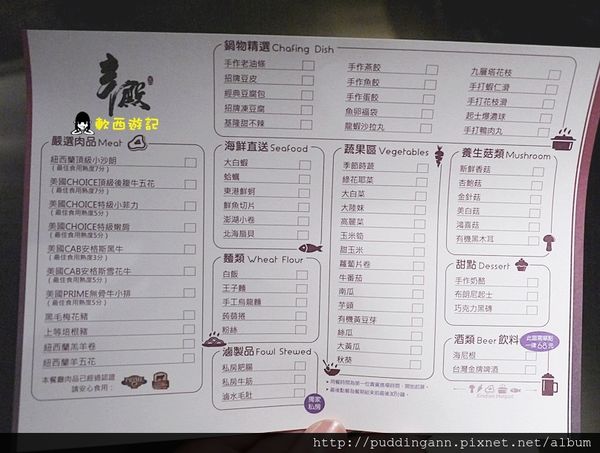 辛殿
軟西遊記
鍋物精選 Chafing Dish
手作老油條
招牌豆皮
經典豆腐包
招牌凍豆腐
基隆甜不辣
手作燕餃
手作魚餃
手作蛋餃
魚卵福袋
龍蝦沙拉丸
九層塔花枝
手打蝦仁滑
手打花枝滑
起士爆漿球
手打鴨肉丸
嚴選肉品 Meat
紐西蘭頂級小沙朗
(最佳食用熟度7分)
美國CHOICE頂級後腹牛五花
(最佳食用熟度7分)
美國CHOICE特級小菲力
(最佳食用熟度5分)
美國CHOICE特級嫩肩
(最佳食用熟度5分)
美國CAB安格斯黑牛
(最佳食用熟度3分)
美國CAB安格斯雪花牛
(最佳食用熟度5分)
美國PRIME無骨牛小排
(最佳食用熟度5分)
黑毛梅花豬
上等培根豬
紐西蘭羔羊卷
紐西蘭羊五花
本餐廳肉品已經過認證
請安心食用:
海鮮直送 Seafood
大白蝦
蛤蠣
東港鮮蚵
鮮魚切片
澎湖小卷
北海扇貝
麵類 Wheat Flour
白飯
王子麵
手工烏龍麵
蒟蒻捲
粉絲
滷製品 Fowl Stewed
私房肥腸
私房牛筋
滷水毛肚
獨家
私房
蔬果區 Vegetables
季節時蔬
綠花耶菜
大白菜
大陸妹
高麗菜
玉米筍
甜玉米
蘿蔔片卷
牛番茄
南瓜
芋頭
有機黃豆芽
絲瓜
大黃瓜
秋葵
養生菇類 Mushroom
新鮮香菇
杏鮑菇
金針菇
美白菇
鴻喜菇
有機黑木耳
甜點 Dessert
手作奶酪
布朗尼起士
巧克力黑磚
酒類 Beer 飲料
此區需單點
一律68元
海尼根
台灣金牌啤酒
http://puddingann.pixnet.net/album